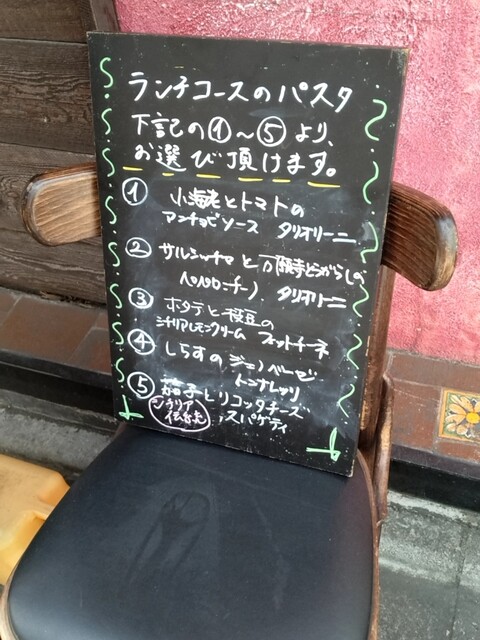 ランチコースのパスタ
下記の①～⑤より、
お選び頂けます。
① 小海老とトマトの
アンチョビソース タリオリーニ
② サルシッチャと万願寺とうがらしの
ペペロンチーノ タリオリーニ
③ ホタテと枝豆の
シチリアレモンクリーム フェットチーネ
④ しらすのジェノベーゼ
トンナレッリ
⑤ 茄子とリコッタチーズ
シチリア
スパゲティ